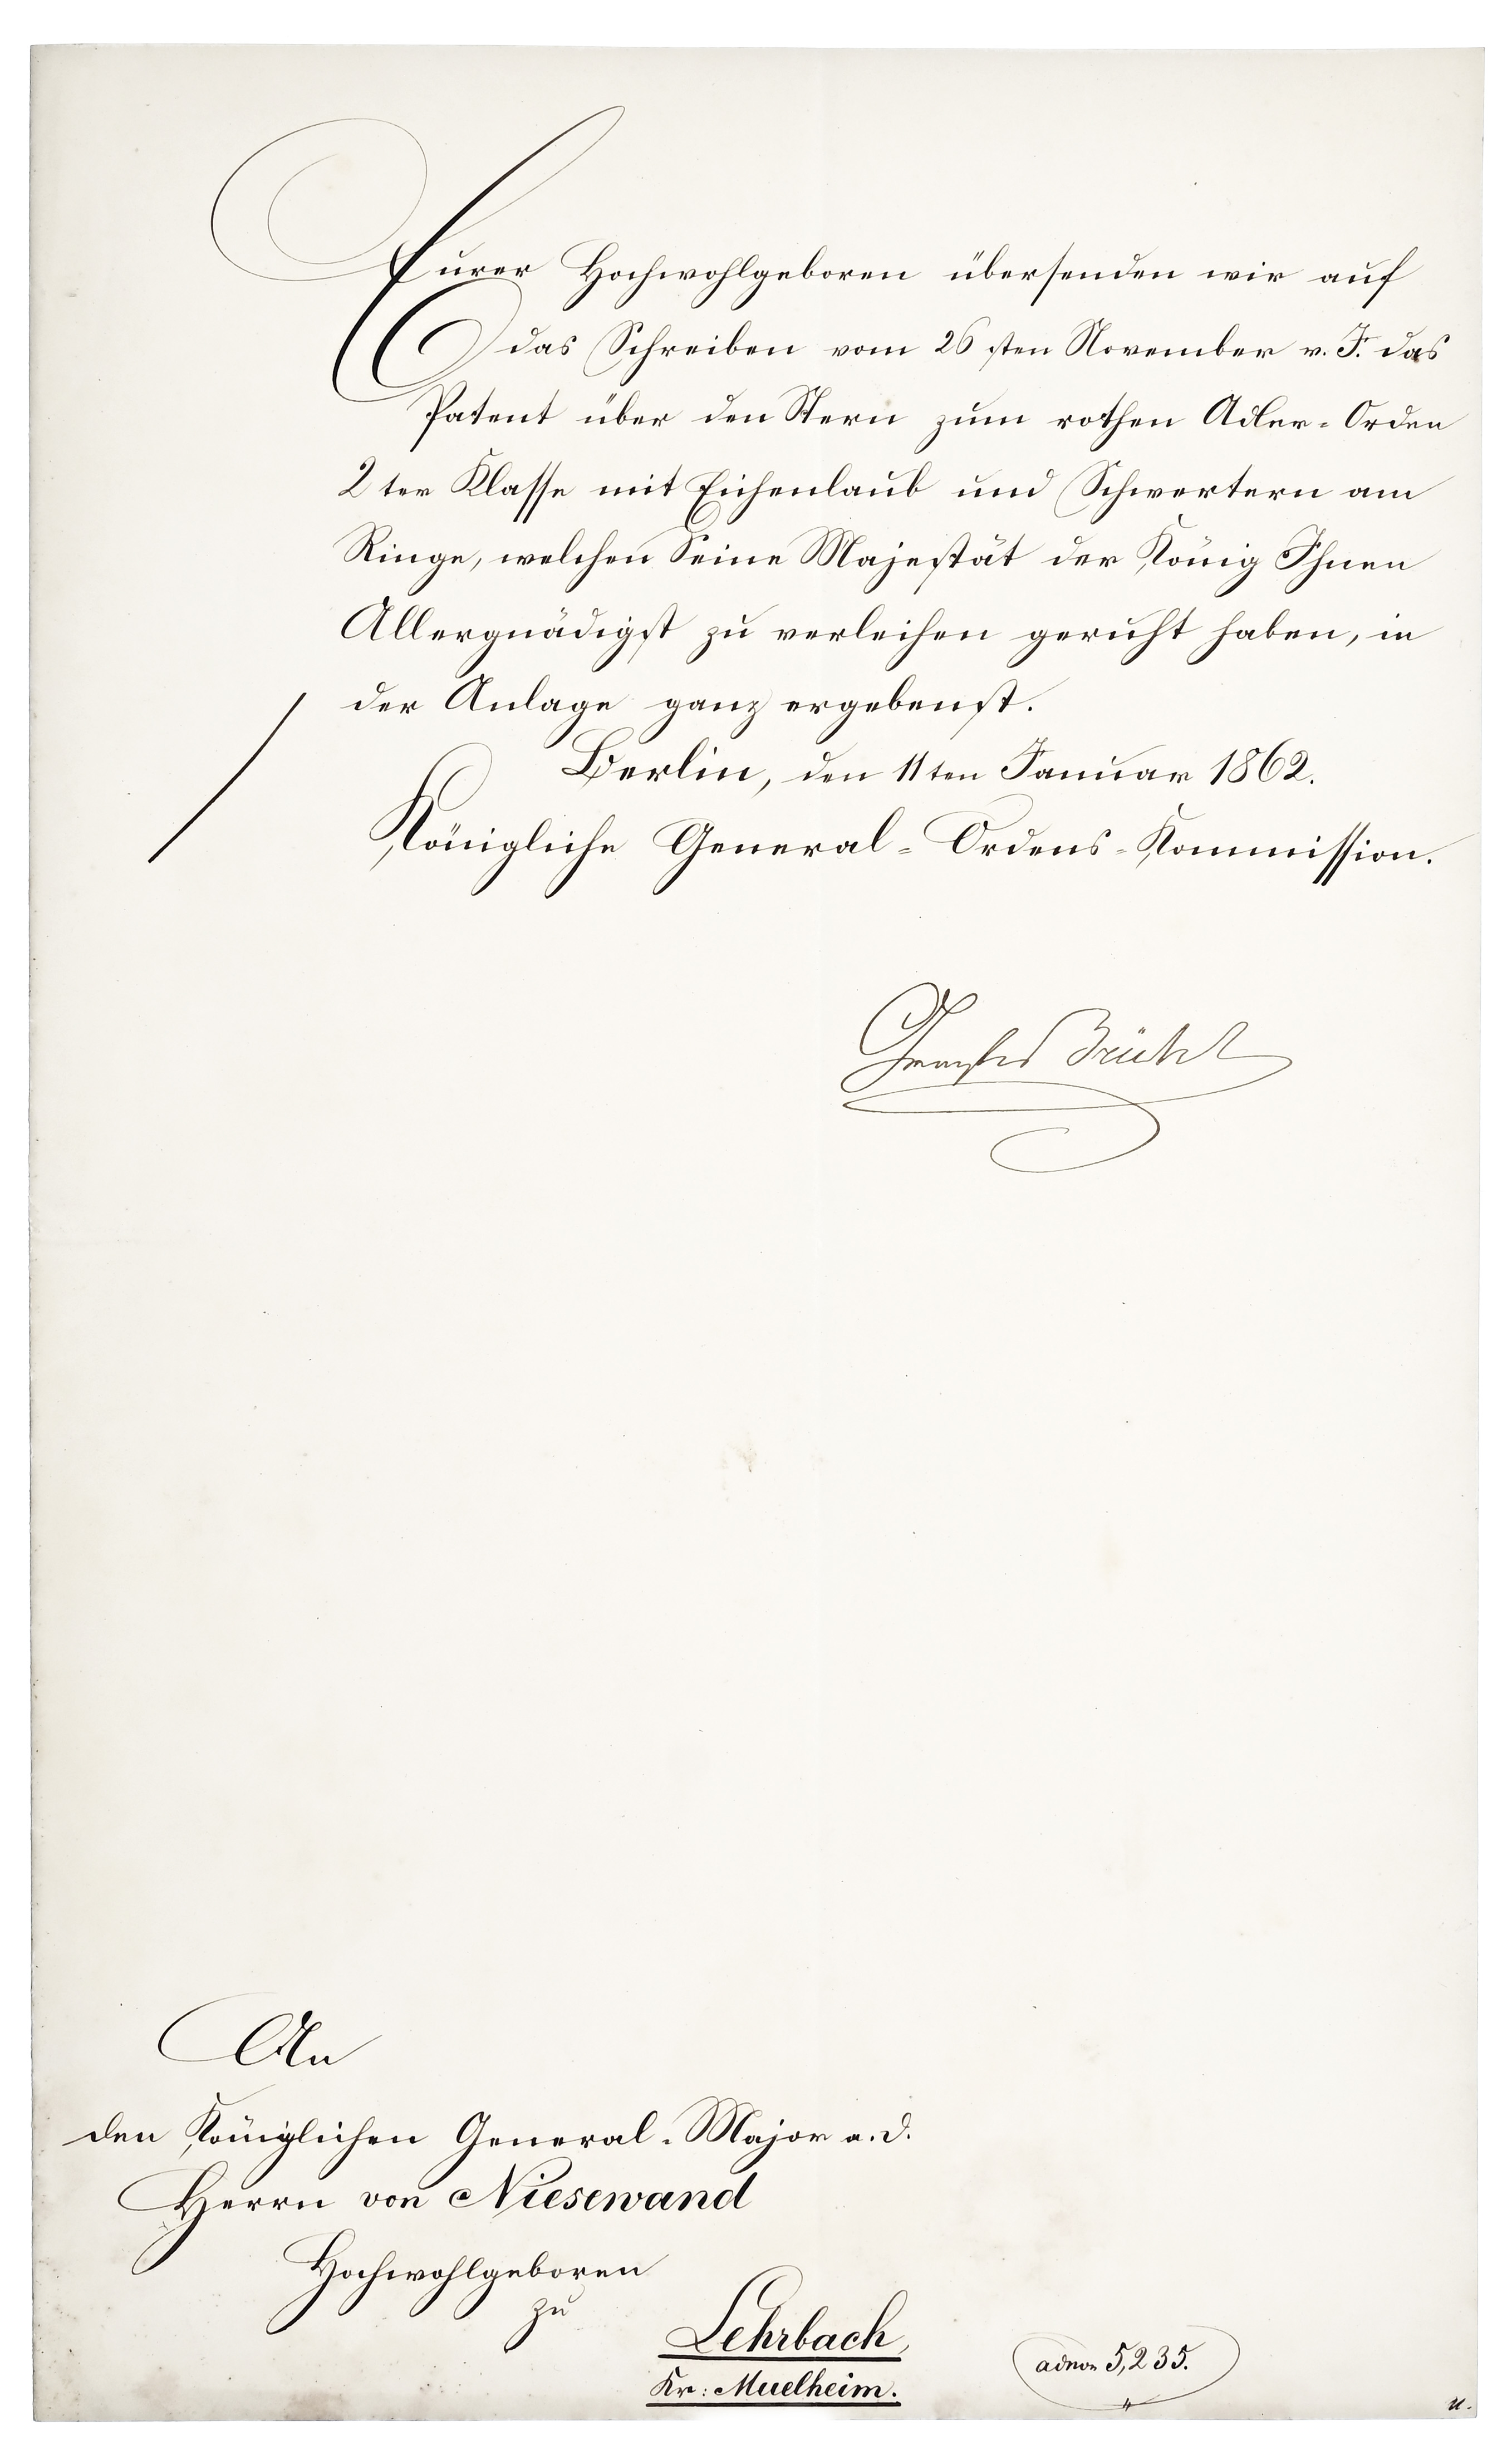 Eurer Hochwohlgeboren übersenden wir auf
das Schreiben vom 26sten November v. J. das
Patent über den Stern zum rothen Adler-Orden
2ter Klasse mit Eichenlaub und Schwertern am
Ringe, welchen Seine Majestät der König Ihnen
Allergnädigst zu verleihen geruht haben, in
der Anlage ganz ergebenst.
Berlin, den 11ten Januar 1862.
Königliche General-Ordens-Kommission.
An
den Königlichen General-Major a. d.
Herrn von Niesewand
Hochwohlgeboren
zu
Lehrbach,
Kr: Muelheim.
5,235.
u.